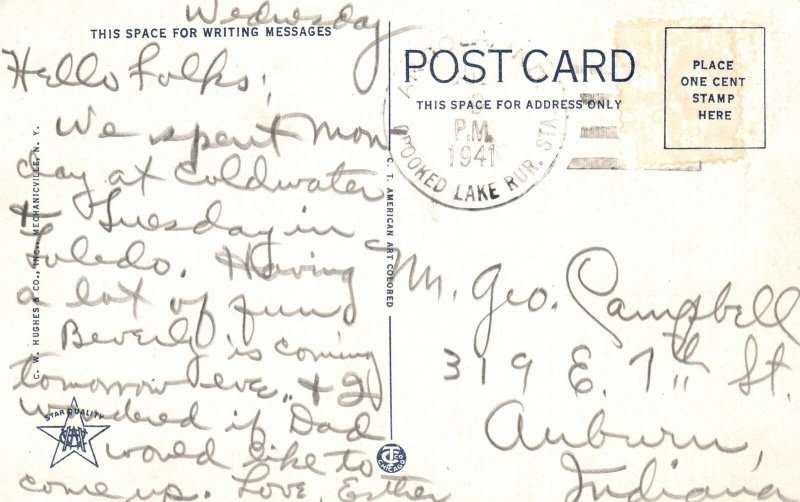 Wednesday
THIS SPACE FOR WRITING MESSAGES
Hello Folks,
We spent Mon-
day at Coldwater
+ Tuesday in
Toledo. Having
a lot of fun
Beverly is coming
tomorrow eve., + I
wondered if Dad
would like to
come up. Love, Esther
C. W. HUGHES & CO., INC., MECHANICVILLE, N. Y.
STAR QUALITY
C. T. AMERICAN ART COLORED
CHICAGO
POST CARD
THIS SPACE FOR ADDRESS ONLY
PLACE
ONE CENT
STAMP
HERE
P.M.
1941
CROOKED LAKE RUR. STA.
Mr. Geo. Campbell
319 E. 7th St.
Auburn,
Indiana